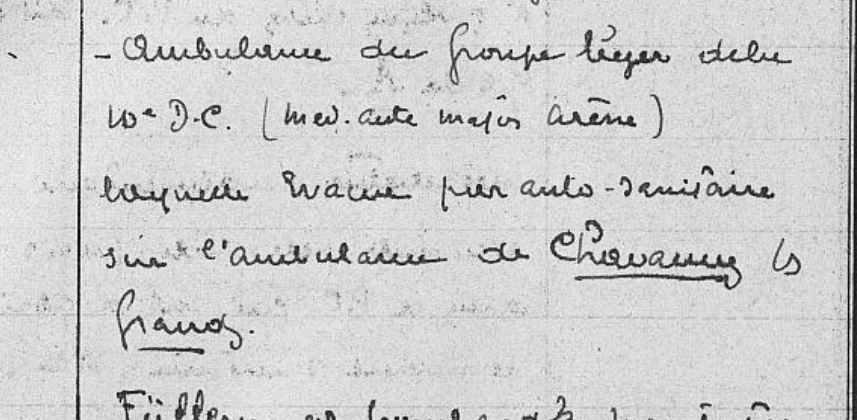 - Ambulance du groupe léger de la
10e D.C. (med. aide major Arène)
laquelle évacue par auto-sanitaire
sur l'ambulance de Chavannes les
Grands.